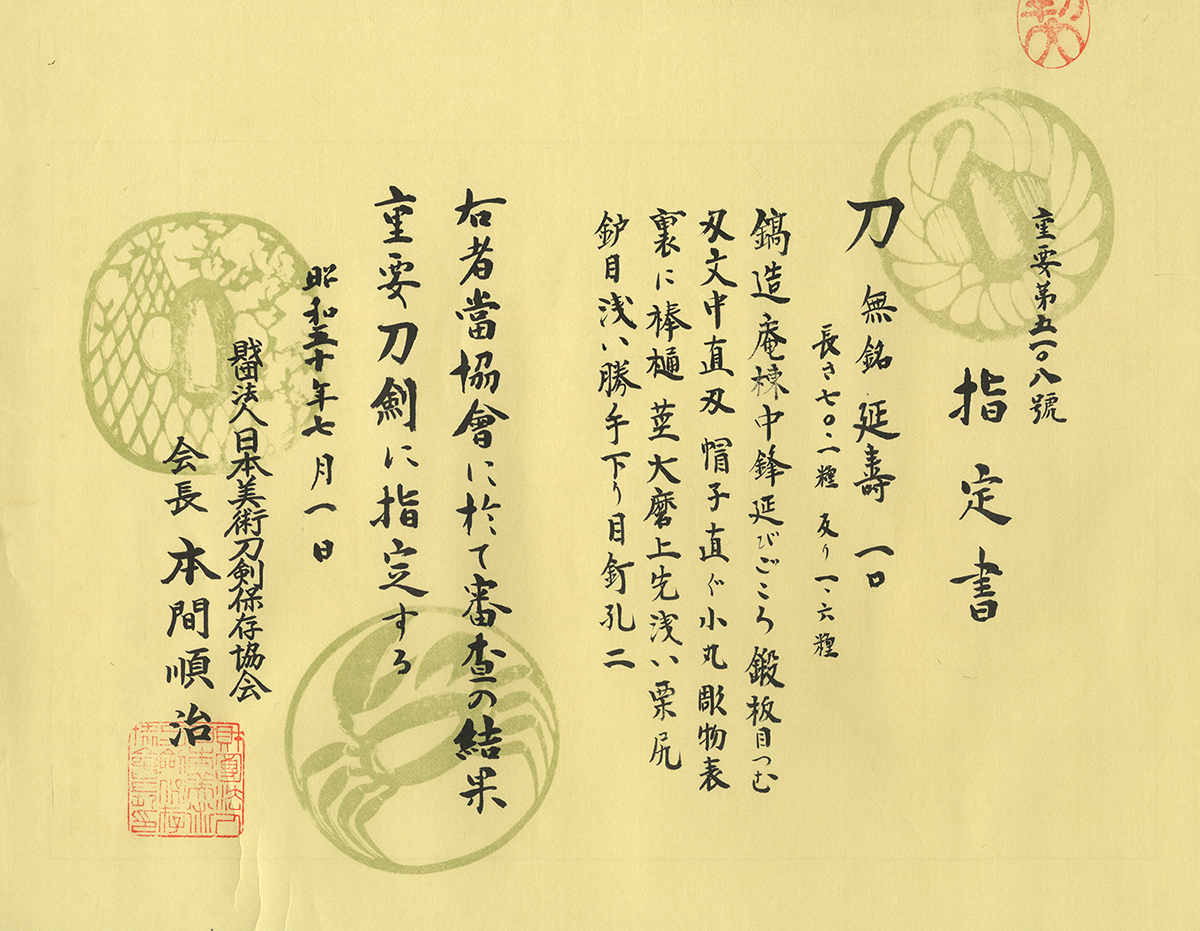 重要第五一〇八號
指定書
刀 無銘 延壽 一口
長さ七〇・二糎 反り一・六糎
鎬造庵棟中鋒延びごころ鍛板目つむ
刃文中直刃帽子直ぐ小丸彫物表
裏に棒樋茎大磨上先浅い栗尻
鈩目浅い勝手下り目釘孔二
右者當協會に於て審査の結果
重要刀剣に指定する
昭和五十年七月一日
財団法人日本美術刀剣保存協会
会長 本間順治